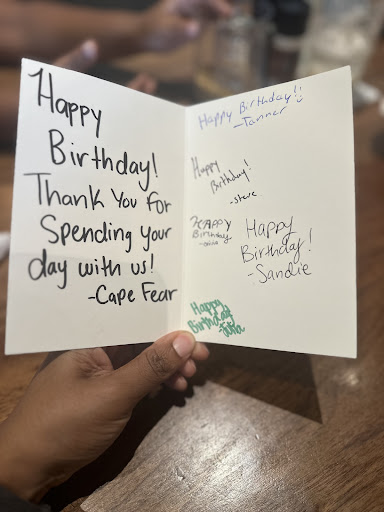 Happy
Birthday!
Thank You for
Spending your
day with us!
-Cape Fear
Happy Birthday!!
-Tanner
Happy
Birthday!
-steve
HAPPY
Birthday
Happy
Birthday!
-Sandie
Happy
Birthday